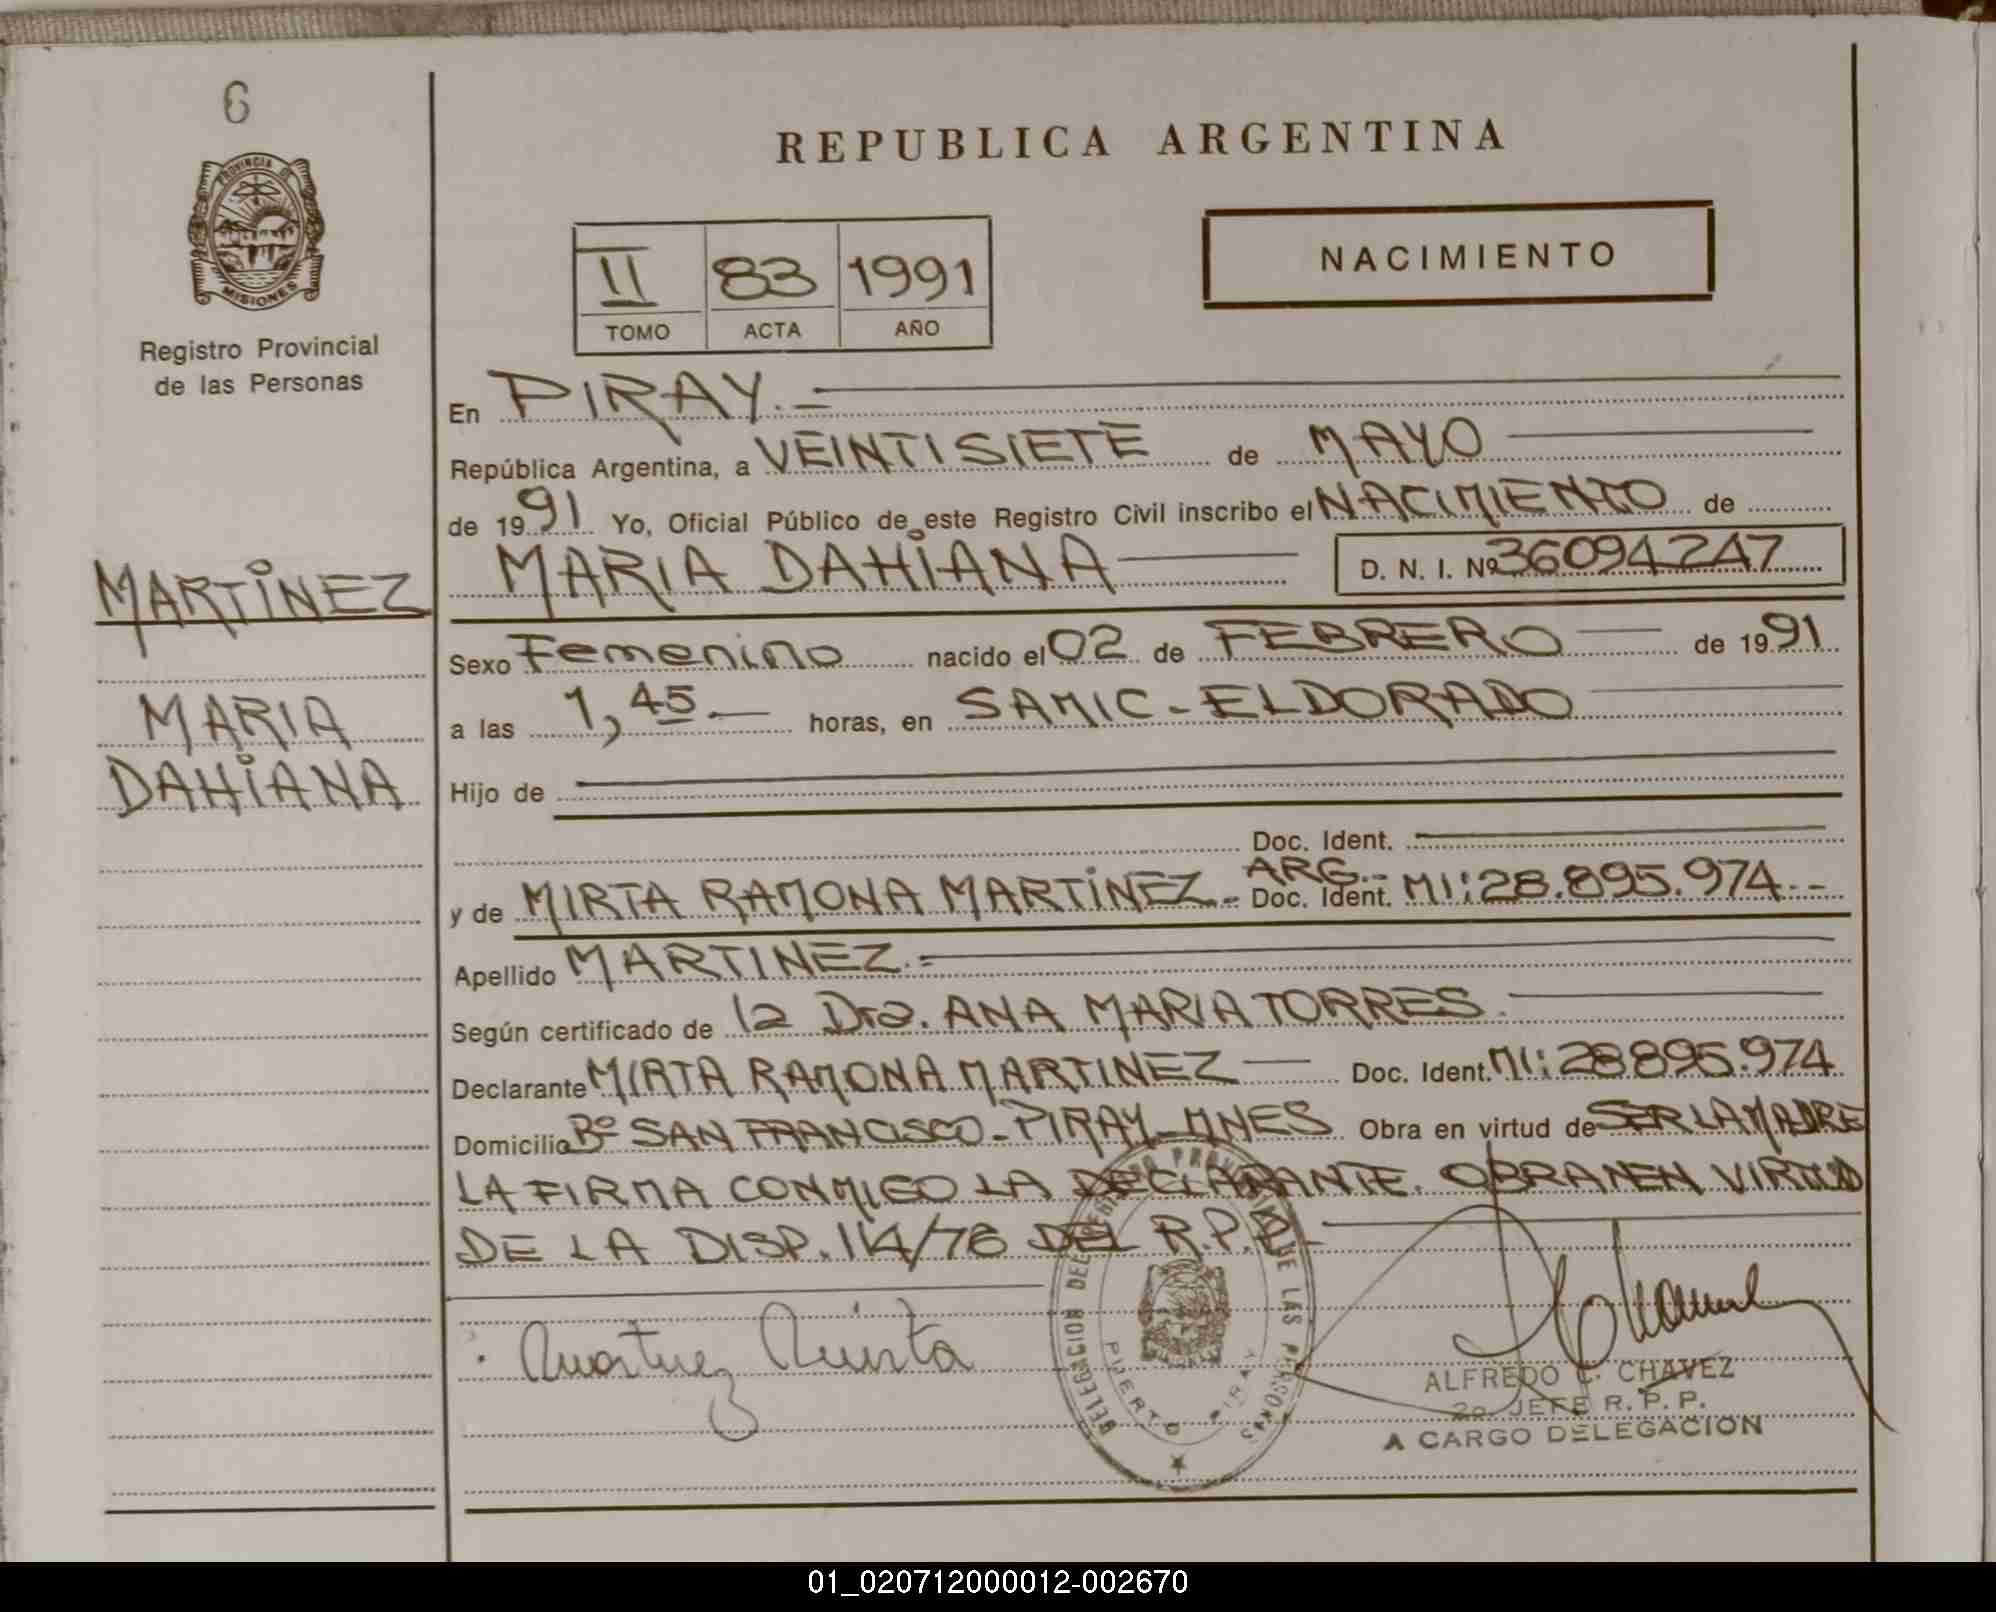 6
PROVINCIA DE
MISIONES
Registro Provincial
de las Personas
REPUBLICA ARGENTINA
II 83 1991
TOMO ACTA AÑO
NACIMIENTO
En PIRAY.-
República Argentina, a VEINTISIETE de MAYO
de 1991 Yo, Oficial Público de este Registro Civil inscribo el NACIMIENTO de
MARIA DAHIANA D. N. I. Nº 36094247
MARTINEZ
MARIA
DAHIANA
Sexo Femenino nacido el 02 de FEBRERO de 1991
a las 1,45 horas, en SAMIC - ELDORADO
Hijo de
Doc. Ident.
y de MIRTA RAMONA MARTINEZ - ARG.- Doc. Ident. MI: 28.895.974.-
Apellido MARTINEZ.-
Según certificado de la Dra. ANA MARIA TORRES.
Declarante MIRTA RAMONA MARTINEZ Doc. Ident. MI: 28895.974
Domicilio Bº SAN FRANCISCO - PIRAY - MNES Obra en virtud de SER LA MADRE
LA FIRMA CONMIGO LA DECLARANTE. OBRAN EN VIRTUD
DE LA DISP. 114/78 DEL R.P.P.-
Martinez Mirta
DELEGACION DEL REGISTRO PROVINCIAL DE LAS PERSONAS
PUERTO PIRAY
ALFREDO C. CHAVEZ
2o. JEFE R. P. P.
A CARGO DELEGACION
01_020712000012-002670